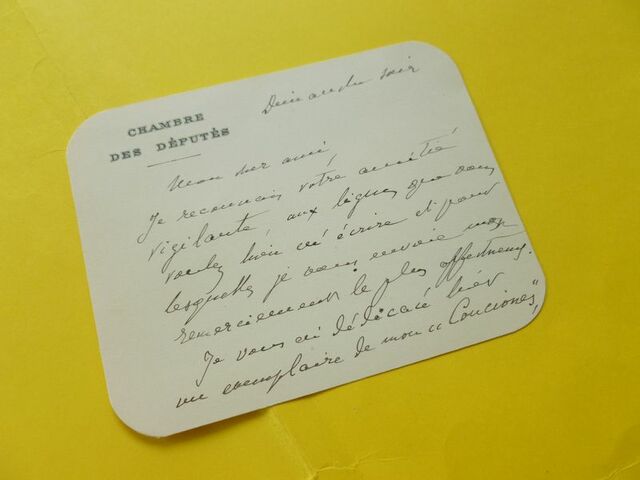 CHAMBRE
DES DÉPUTÉS
Dimanche soir
Mon cher ami,
Je reconnais votre amitié
vigilante, aux lignes que vous
voulez bien m'écrire et pour
lesquelles je vous envoie mes
remerciements les plus affectueux.
Je vous ai dédicacé hier
un exemplaire de mon "Conciones",